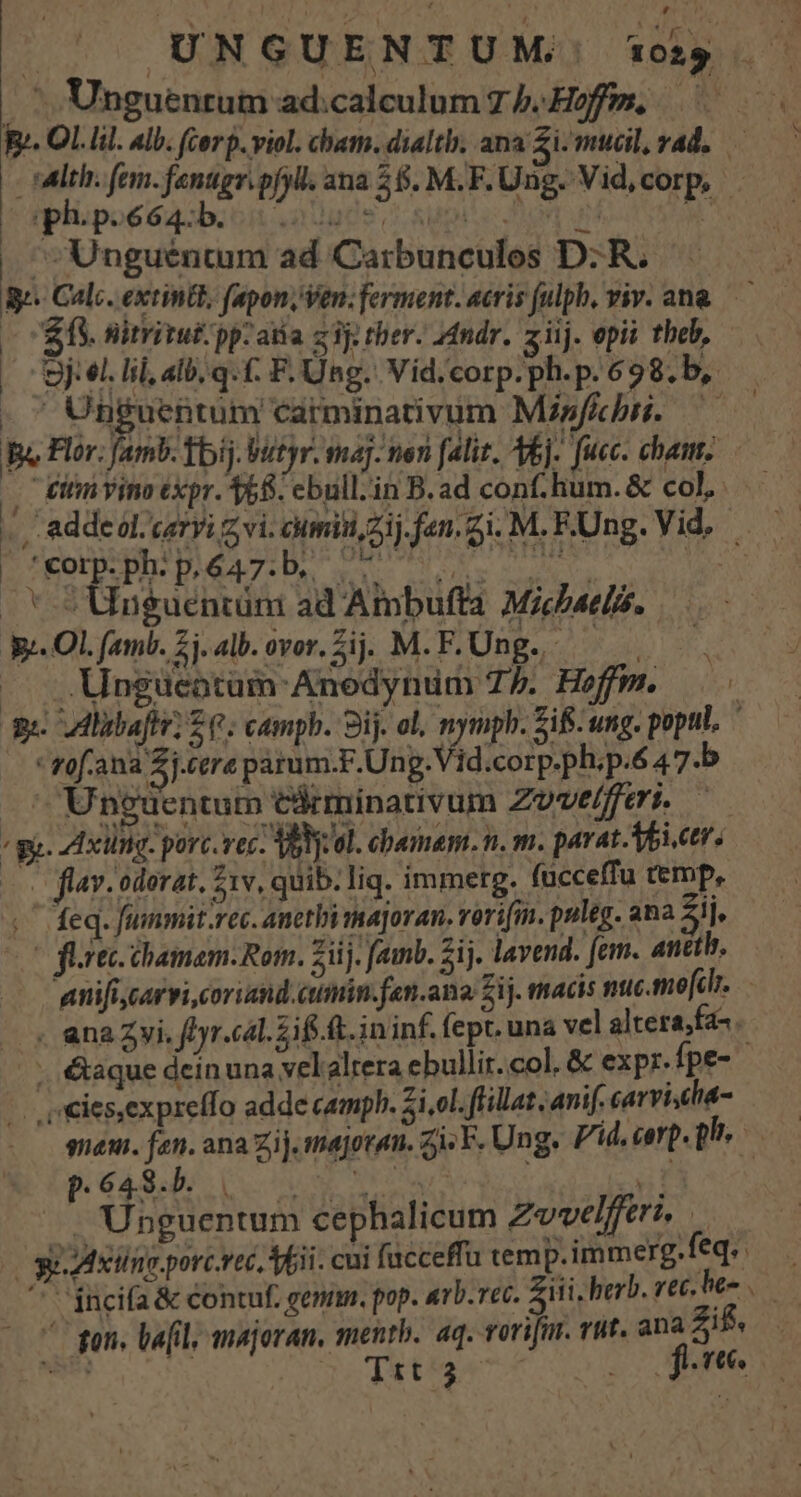 UNGUENTUM. 1029
Unguentum ad calculum Th. Hoffm.
℞. Ol. lil. alb. ſcorp. viol. cham. dialth. ana ℥i. mucil. rad.
alth. ſem. fœnugr. pſyll. ana ℥ß. M. F. Ung. Vid. corp.
ph. p. 664. b.
Unguentum ad Carbunculos D. R.
℞. Calc. extinct. ſapon. Ven. ferment. acris ſulph. viv. ana
℥ß. nitri rut. pp. ana ʒij. ther. Andr. ʒiij. opii theb.
℈j. ol. lil. alb. q. ſ. F. Ung. Vid. corp. ph. p. 698. b.
Unguentum carminativum Minſichti.
℞. Flor. ſamb. ℔ij. butyr. maj. non ſalit. ℔j. ſucc. cham.
cum vino expr. ℔ß. ebull. in B. ad conſ. hum. & col.
adde ol. carvi ʒvi. cumin. ℥ij. fœn. ℥i. M. F. Ung. Vid.
corp. ph. p. 647. b.
Unguentum ad Ambuſta Michaelis.
℞. Ol. ſamb. ℥j. alb. ovor. ℥ij. M. F. Ung.
Unguentum Anodynum Th. Hoffm.
℞. Alabaſtr. ℥ß. camph. ℈ij. ol. nymph. ℥iß. ung. popul.
roſ. ana ℥j. ceræ parum. F. Ung. Vid. corp. ph. p. 647. b
Unguentum carminativum Zvvelfferi.
℞. Axung. porc. rec. ol. chamæm. n. m. parat. ℔i, cer.
flav. odorat. ℥ıv, quib. liq. immerg. ſucceſſu temp.
ſeq. ſummit. rec. anethi majoran. roriſm. puleg. ana ℥ij.
fl. rec. chamæm. Rom. ℥iij. ſamb. ℥ij. lavend. ſem. aneth.
aniſi, carvi, coriand. cumin. fœn. ana ℥ij. macis nuc. moſch.
ana ʒvi. ſtyr. cal. ℥iß. ſt. in inf. ſept. una vel altera, fa-
ctaque dein una vel altera ebullit. col. & expr. ſpe-
cies, expreſſo adde camph. ℥i, ol. ſtillat. aniſ. carvi, cha-
mæm. fœn. ana ʒij. majoran. ʒi. F. Ung. Vid. corp. ph.
p. 648. b.
Unguentum cephalicum Zvvelfferi.
℞. Axung. porc. rec. ℔ii. cui ſucceſſu temp. immerg. ſeq.
inciſa & contuſ. gemm. pop. arb. rec. ℥iii. herb. rec. be-
ton. baſil. majoran. menth. aq. roriſm. rut. ana ℥iß.
Ttt 3 fl. rec.